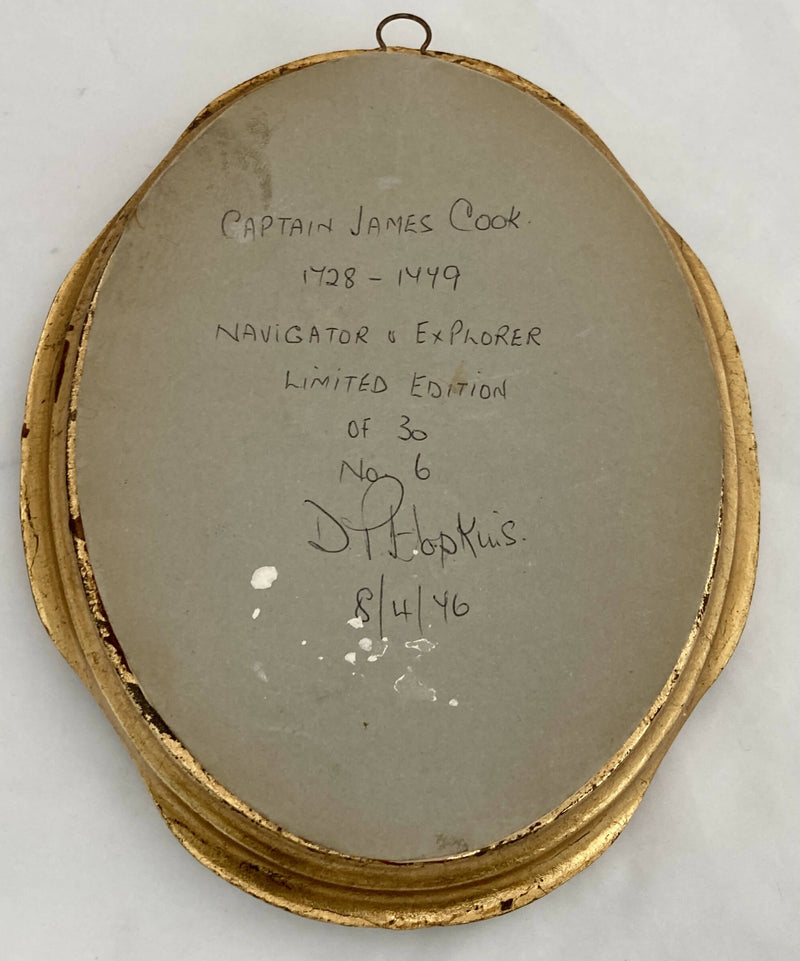 CAPTAIN JAMES COOK.
1728 - 1779
NAVIGATOR & EXPLORER
LIMITED EDITION
OF 30
No 6
D P Hopkins.
8/4/76